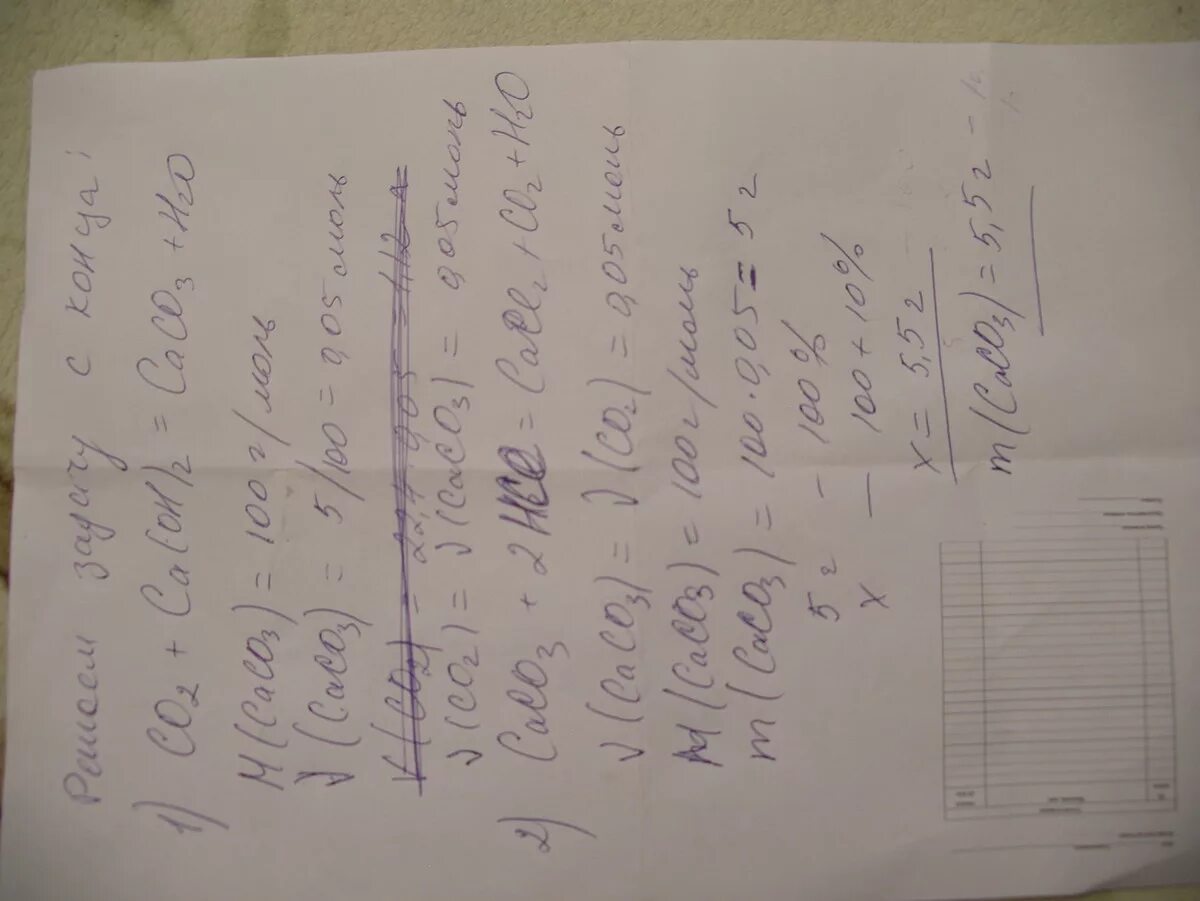 Решаем задачу с конца:
1) CO2 + Ca(OH)2 = CaCO3 + H2O
M(CaCO3) = 100 г/моль
ν(CaCO3) = 5/100 = 0,05 моль
V(CO2) = 22,4 · 0,05 = 1,12 л
ν(CO2) = ν(CaCO3) = 0,05 моль
2) CaCO3 + 2HCl = CaCl2 + CO2 + H2O
ν(CaCO3) = ν(CO2) = 0,05 моль
M(CaCO3) = 100 г/моль
m(CaCO3) = 100 · 0,05 = 5 г
5 г – 100%
x – 100 + 10%
x = 5,5 г
m(CaCO3) = 5,5 г